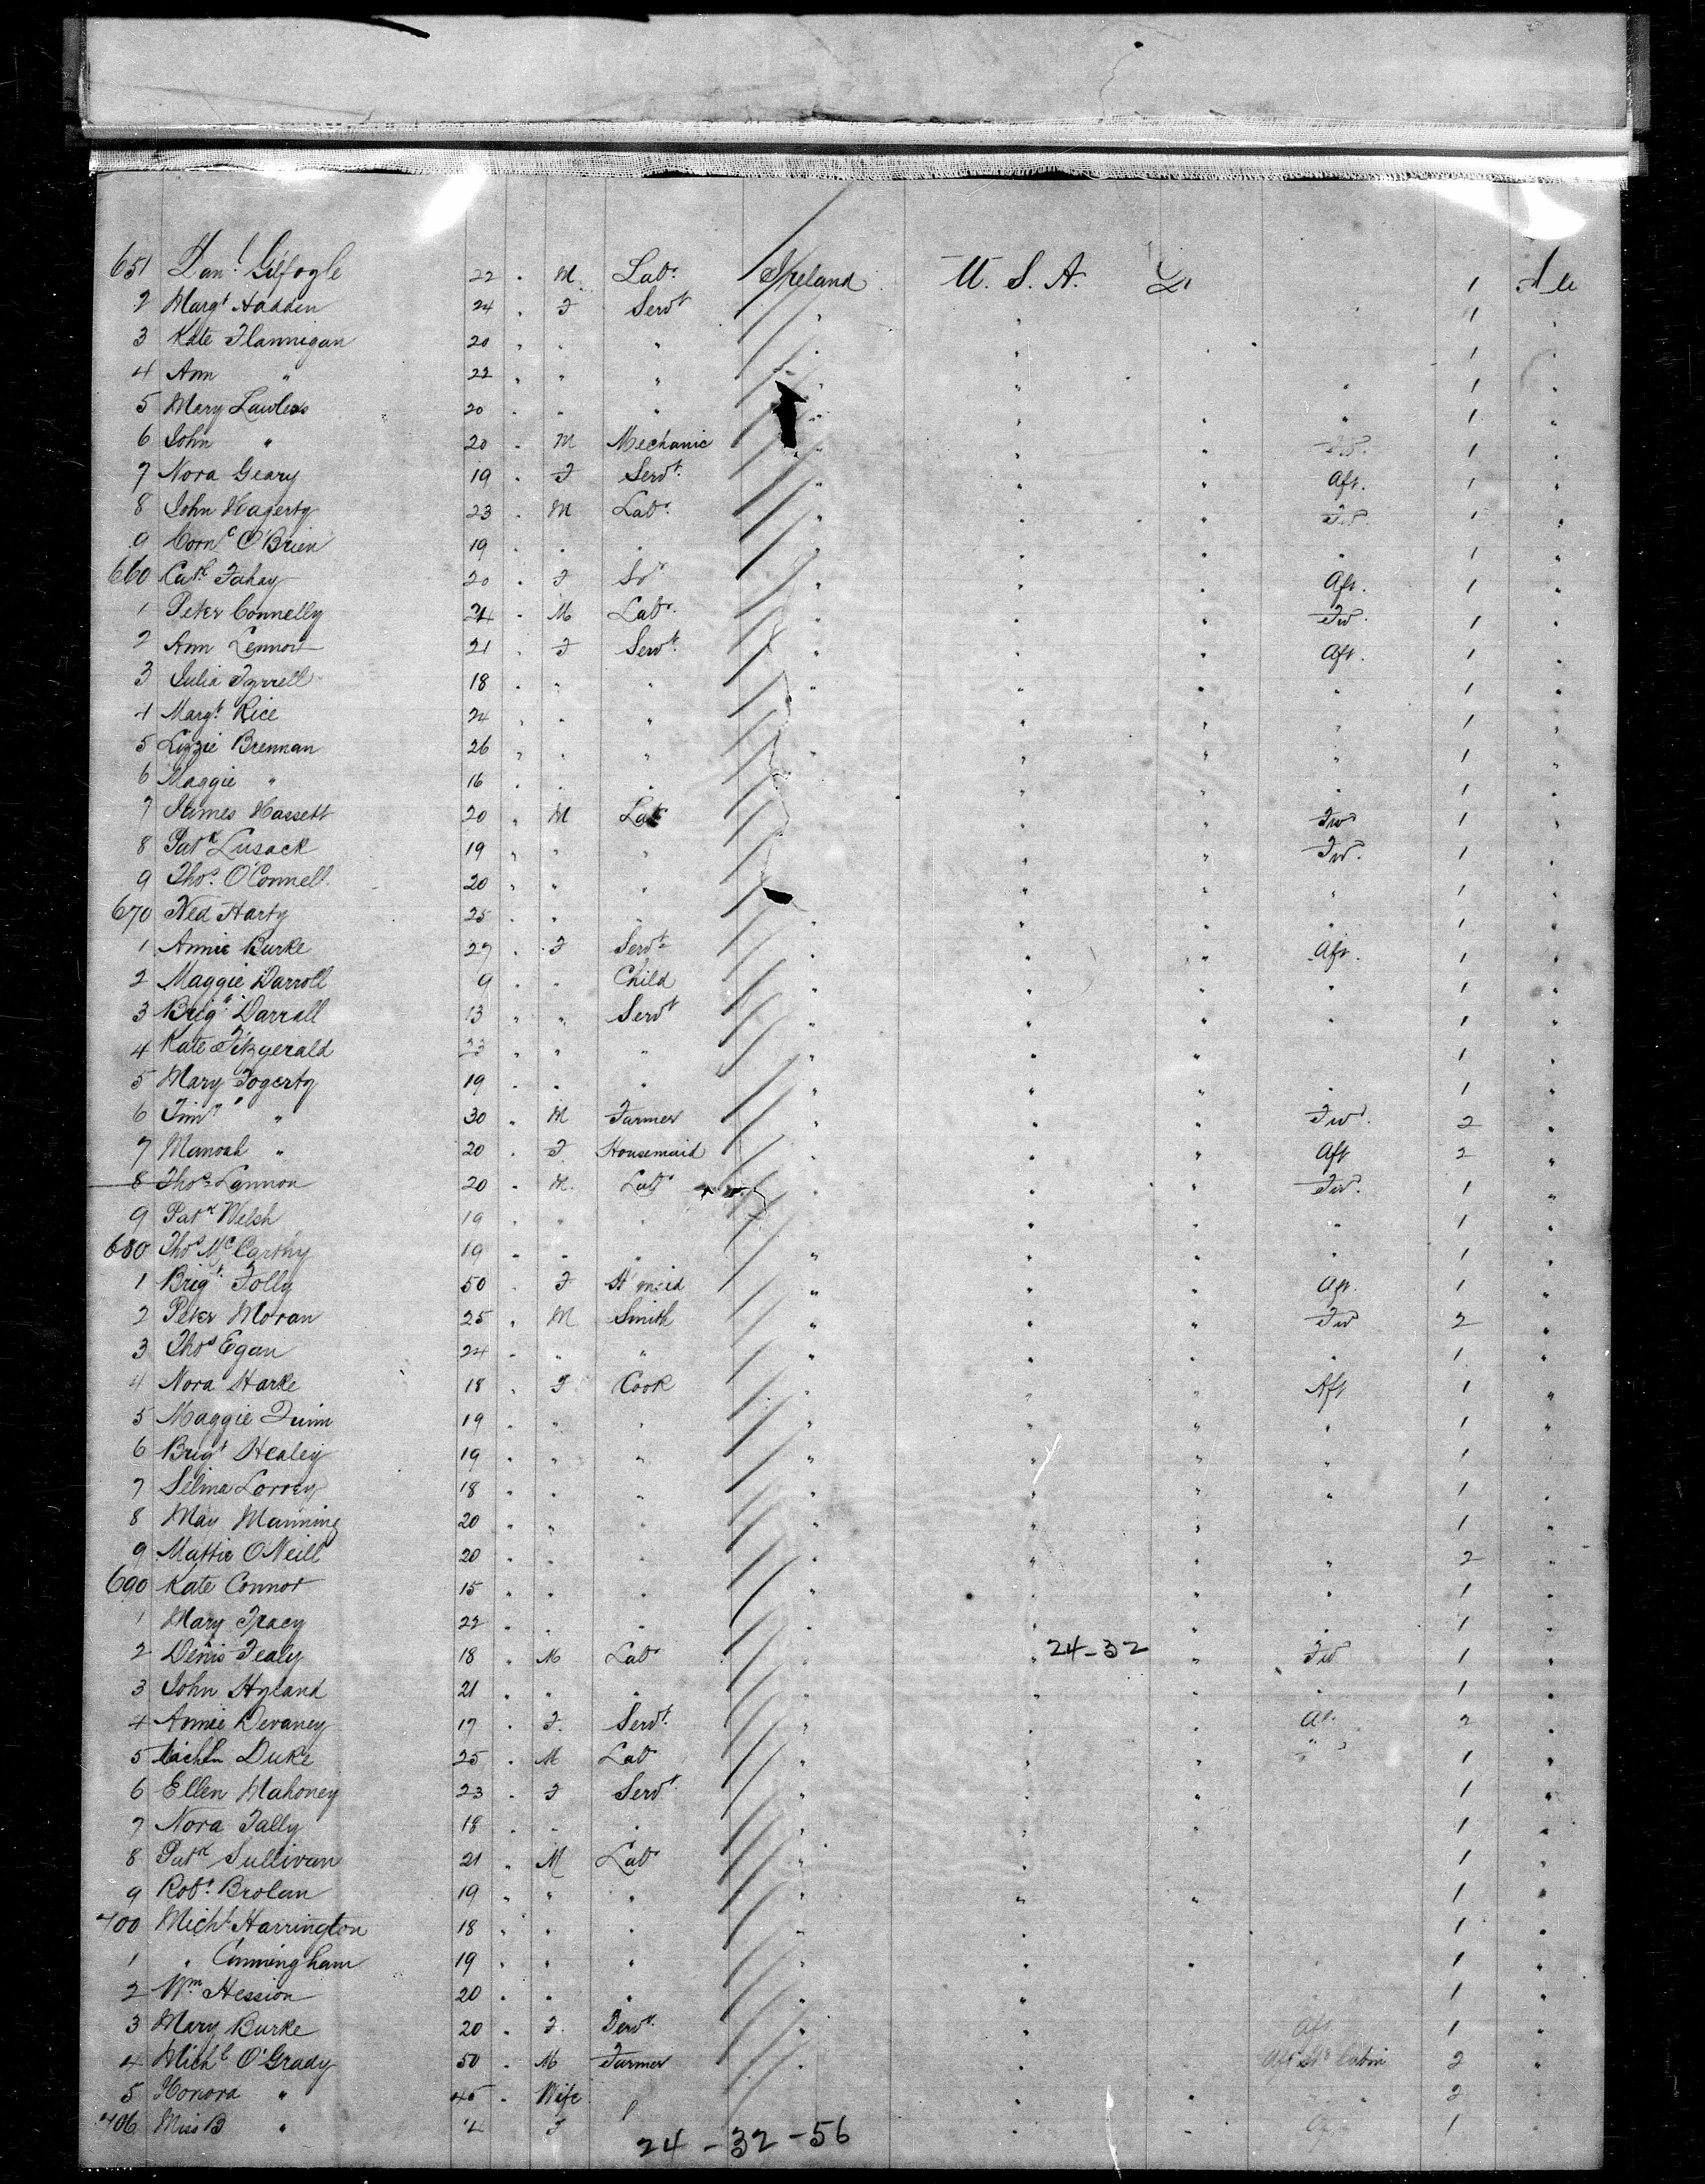 651 Dan.l Gilfogle 22 " M. Lab.r Ireland U. S. A. 1
2 Marg.t Hadden 24 " F Serv.t " " 1 "
3 Kate Flannigan 20 " " " " " " 1 "
4 Ann " 22 " " " " " " 1 "
5 Mary Lawless 20 " " " " " " " 1 "
6 John " 20 " M Mechanic " " " Fw.d 1 "
7 Nora Geary 19 " F Serv.t " " " Aft. 1 "
8 John Hagerty 23 " M Lab.r " " " Fw.d 1 "
9 Corn.s O'Brien 19 " " " " " " " 1 "
660 Cath Fahay 20 " F " " " Aft. 1 "
1 Peter Connelly 24 " M Lab.r " " " Fw.d 1 "
2 Ann Lennon 21 " F Serv.t " " " Aft. 1 "
3 Julia Tyrrell 18 " " " " " " " 1 "
4 Marg.t Rice 24 " " " " " " " 1 "
5 Lizzie Brennan 26 " " " " " " " 1 "
6 Maggie " 16 " " " " " " 1 "
7 James Hassett 20 " M Lab " " Fw.d 1 "
8 Pat.k Cusack 19 " " " " " Fw.d 1 "
9 Tho.s O'Connell 20 " " " " " " 1 "
670 Ned Harty 25 " " " " " " " 1 "
1 Annie Burke 27 " F Serv.t " " " Aft. 1 "
2 Maggie Darroll 9 " " Child " " " " 1 "
3 Brig.t Darrall 13 " " Serv.t " " " " 1 "
4 Kate Fitzgerald 23 " " " " " " 1 "
5 Mary Fogerty 19 " " " " " " 1 "
6 Tim.y " 30 " M Farmer " " " Fw.d 2 "
7 Manoah " 20 " F. Housemaid " " " Aft 2 "
8 Tho.s Lennon 20 " M. Lab.r " " " Fw.d 1 "
9 Pat.k Welsh 19 " " " " " " 1 "
680 Tho.s McCarthy 19 " " " " " " " 1 "
1 Brig.t Folly 50 " F H'maid " " " Aft. 1 "
2 Peter Moran 25 " M Smith " " " Fw.d 2 "
3 Tho.s Egan 24 " " " " " " " 1 "
4 Nora Harke 18 " F Cook " " " Aft 1 "
5 Maggie Quinn 19 " " " " " " " 1 "
6 Brig.t Healey 19 " " " " " " " 1 "
7 Selina Lorrey 18 " " " " " " 1 "
8 May Manning 20 " " " " " 1 "
9 Mattie O'Neill 20 " " " " " " 2 "
690 Kate Connor 15 " " " " " " " 1 "
1 Mary Tracy 22 " " " " " " 1 "
2 Denis Fealy 18 " M Lab.r " " 24-32 " Fw.d 1 "
3 John Hyland 21 " " " " " " " 1 "
4 Annie Devaney 17 " F. Serv.t " " " 2 "
5 Duke 25 " M Lab.r " " " " 1 "
6 Ellen Mahoney 23 " F Serv.t " " " 1 "
7 Nora Tally 18 " " " " " " 1 "
8 Pat.k Sullivan 21 " M Lab.r " " 1 "
9 Rob.t Brolan 19 " " " " " " 1 "
700 Mich.l Harrington 18 " " " " " 1 "
1 " Cunningham 19 " " " " " " 1 "
2 W.m Hession 20 " " " " " 1 "
3 Mary Burke 20 " F. Serv.t " " Aft 1 "
4 Mich.l O'Grady 50 " M Farmer " " Cabin 2 "
5 Honora " 45 " Wife " " 2 "
706 Miss B " F " " Aft 1 "
24-32-56